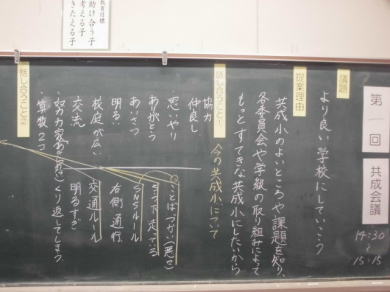 教育目標
助け合う子
考える子
きたえる子
第一回
共成会議
14:30
〜
15:15
議題
より良い学校にしていこう
提案理由
共成小のよいところや課題を知り、
各委員会や学級の取り組みによって
もっとすてきな共成小にしたいから
話し合うこと①
今の共成小について
協力
仲良し
思いやり
ありがとう
あいさつ
明るい
校庭が広い
交流
ことばづかい(悪い)
ろうか走ってる
SNSルール
右側通行
明るすぎ
交通ルール
くり返してしまう
話し合うこと②